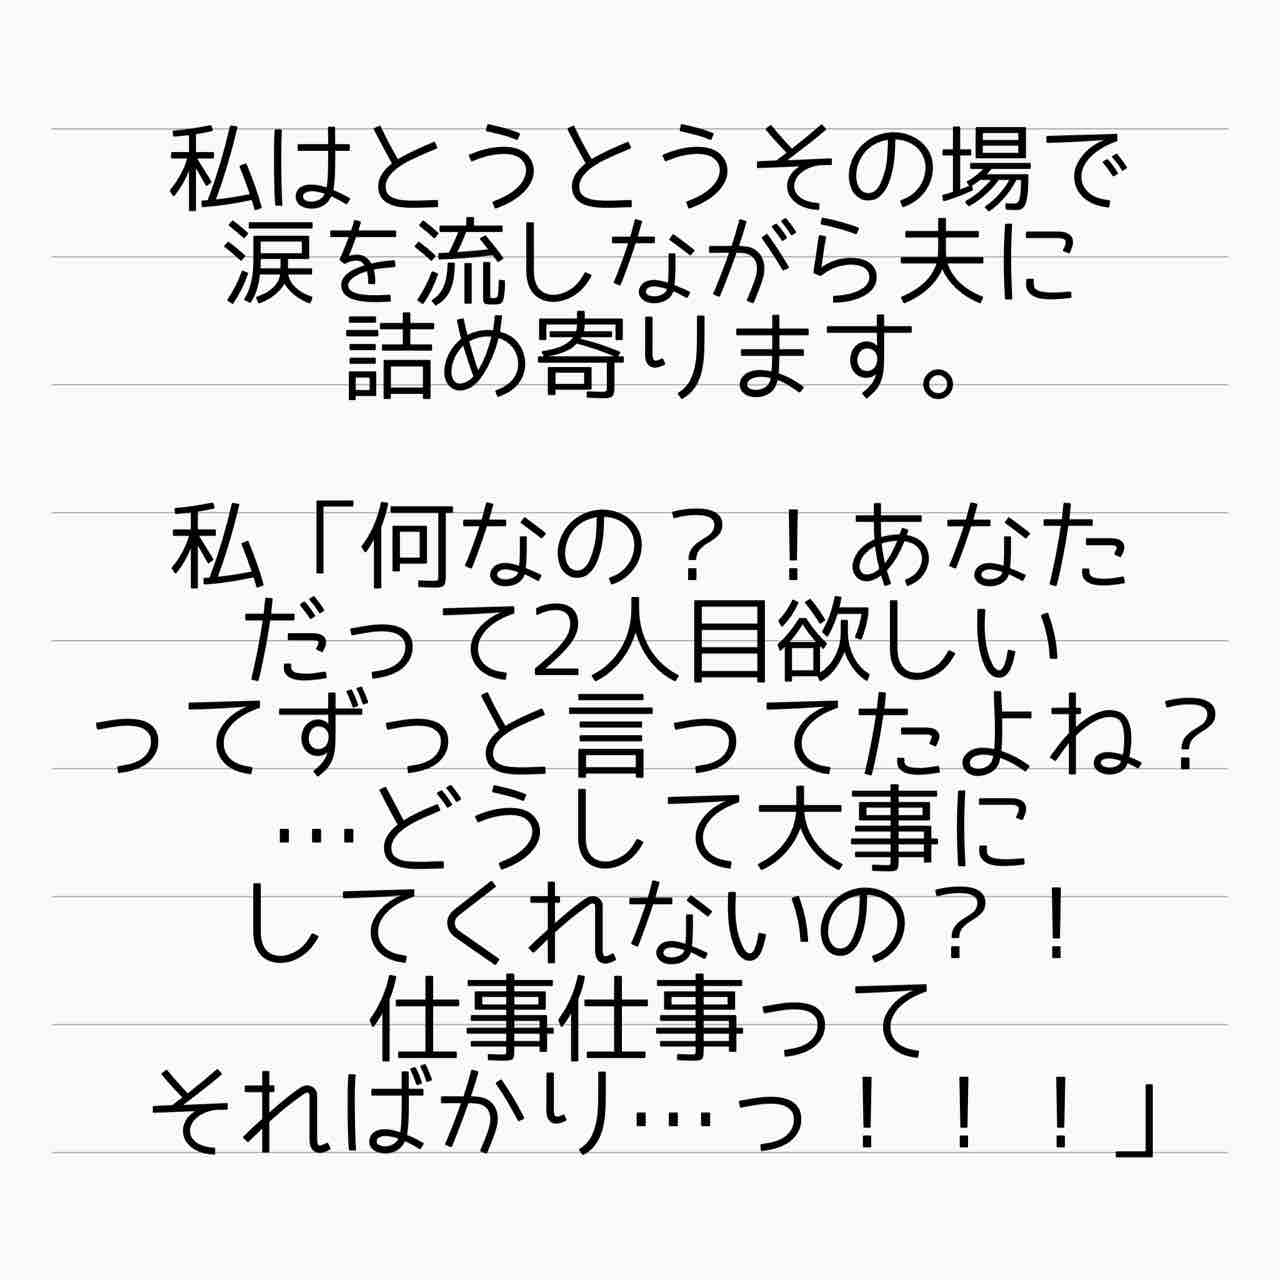 私はとうとうその場で
涙を流しながら夫に
詰め寄ります。
私「何なの？！あなた
だって2人目欲しい
ってずっと言ってたよね？
…どうして大事に
してくれないの？！
仕事仕事って
そればかり…っ！！！」